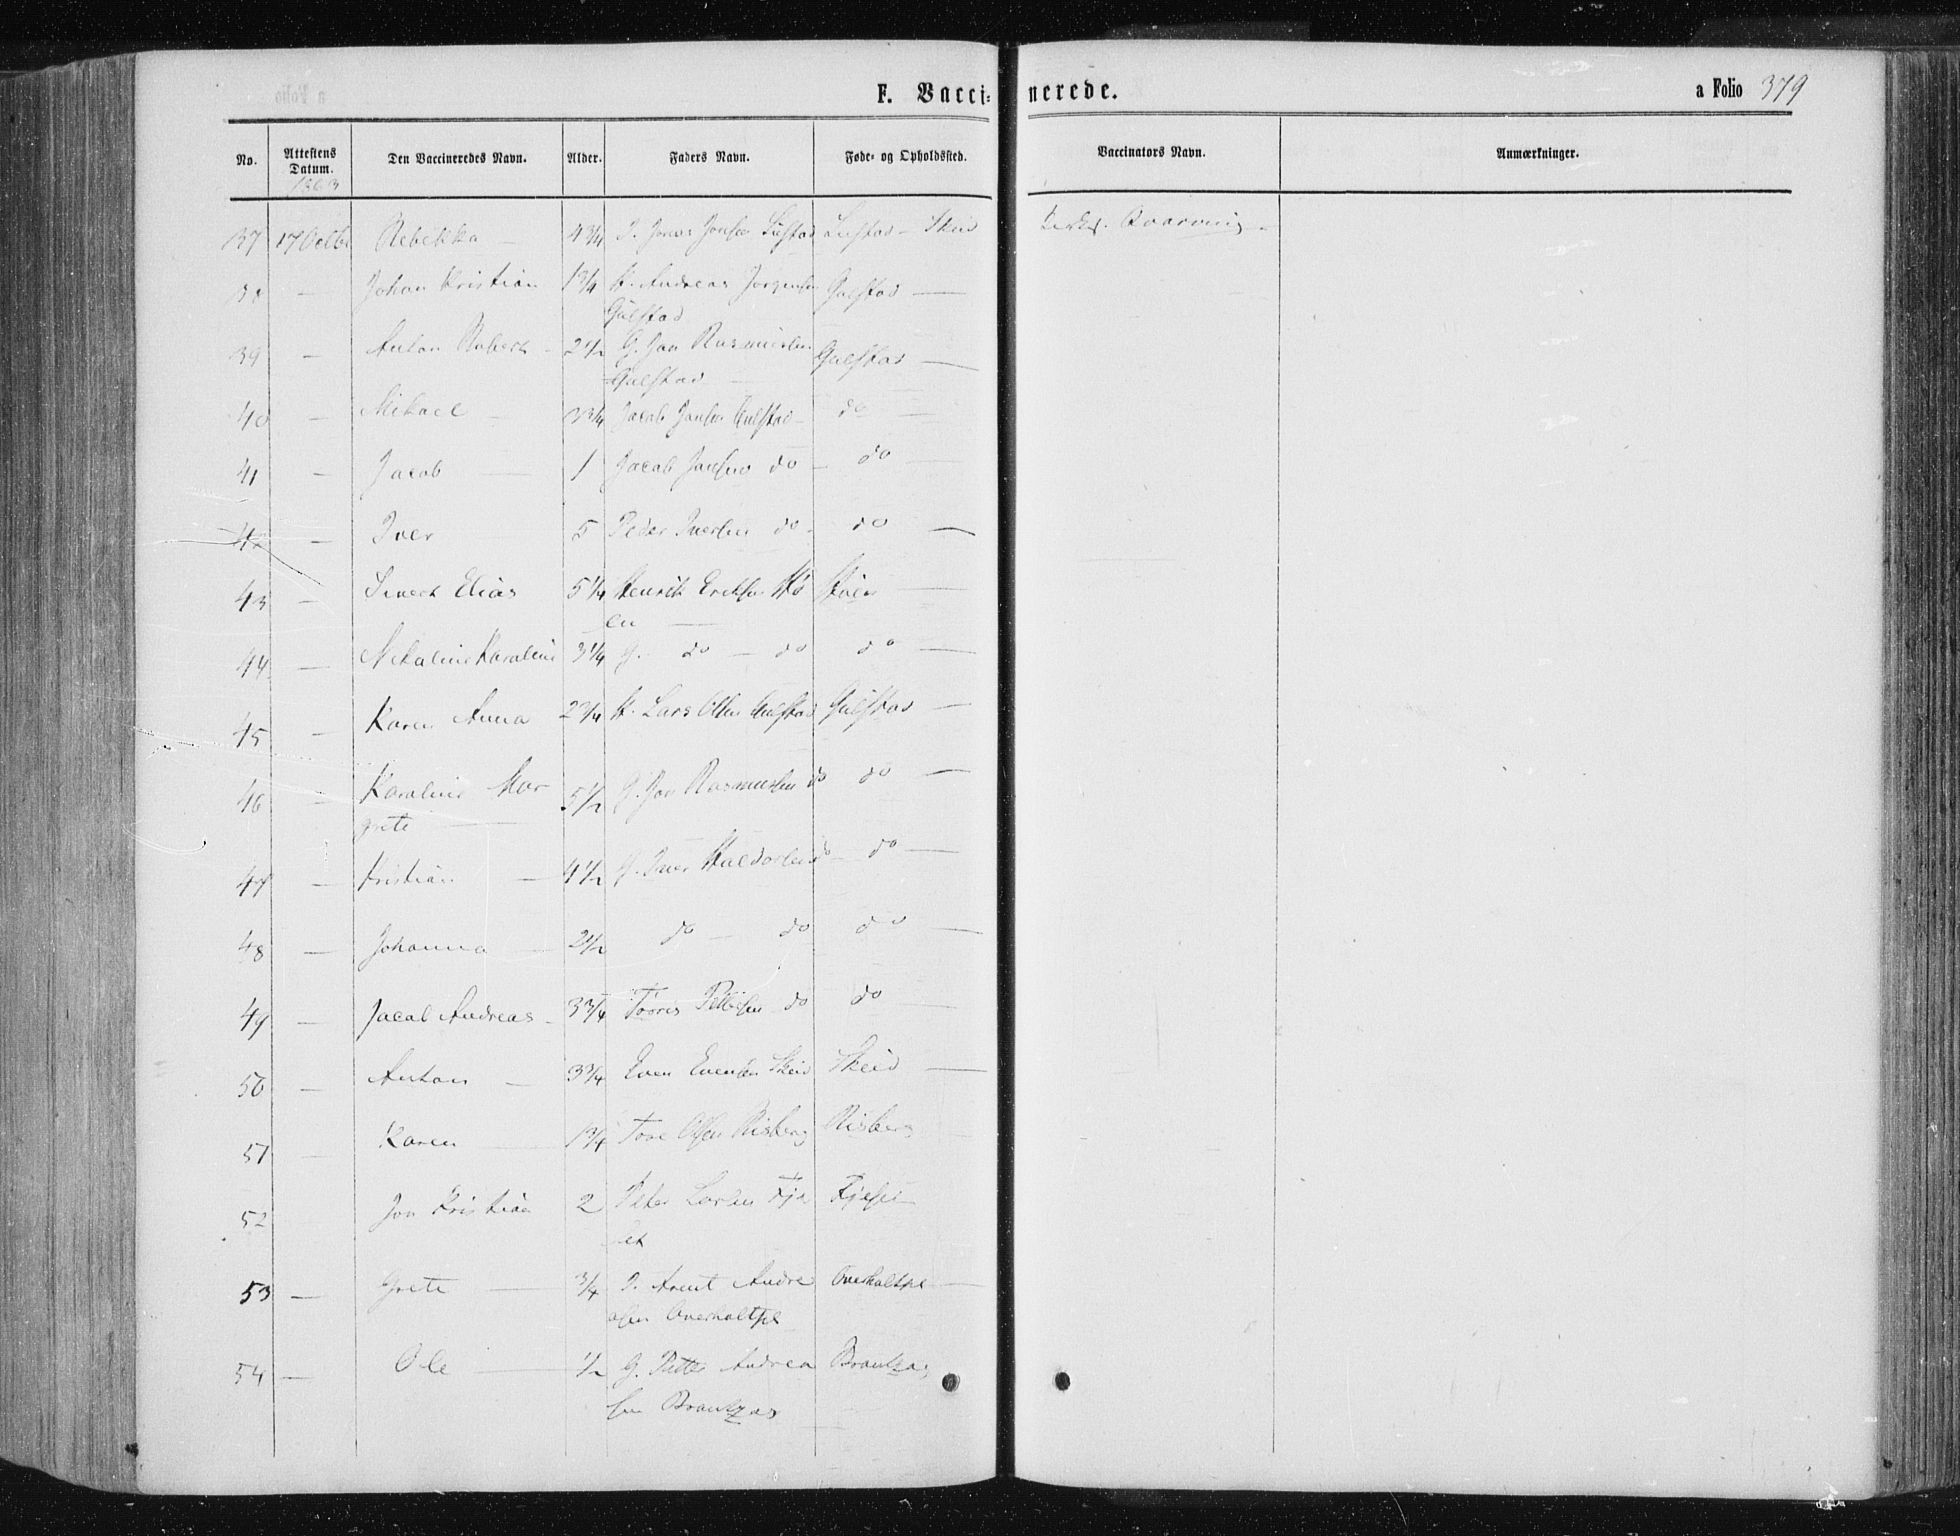 F. Vaccinerede.
a Folio 379
No. Attestens Datum. Den Vaccineredes Navn. Alder. Faders Navn. Føde- og Opholdssted. Vaccinators Navn. Anmærkninger.
1863
37 17 Octbr Rebekka — 4 3/4 Jonas Skeid
38 — Johan Kristian 1 3/4 H. Andreas Jørgensen Gulstad —
Gulstad
39 — Anton Robert - 2 1/2 G. Jon Rasmussen Gulstad —
Gulstad —
40 — Mikael — 3/4 Jacob Jonsen Gulstad - do —
41 — Jacob — 1 Jacob Jonsen do - do —
42 — Iver 5 Peder Iversen do - do —
43 — Sivert Elias 5 1/4 Henrik Eriksen Hø Høien —
en —
44 — Nikoline Karoline 3 1/4 G. do — do do —
45 — Karen Anna 2 3/4 H. Lars Olsen Gulstad Gulstad —
46 — Karoline Mar 5 1/2 G. Jon Rasmussen do do —
grete —
47 — Kristian — 4 1/2 G. Iver Haldorsen do — do —
48 — Johanna — 2 1/2 do — do do —
49 — Jacob Andreas - 3 3/4 do do —
50 — Anton — 3 3/4 Even Evensen Skeid Skeid —
51 — Karen — 1 3/4 Tore Olsen Risberg Risberg
52 Jon Kristian 2 Peter Larsen
53 — Grete — 3/4 Arent Andre Overhaltpl —
asen Overhaltpl
54 — Ole — 1/2 G. Petter Andrea
sen